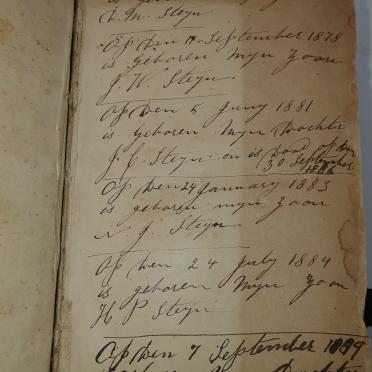 M. Steyn
Op den 18 September 1878
is Geboren Myn Zoon
J. H. Steyn.
Op den 5 Juny 1881
is Geboren Myn Dochte
J. C. Steyn en is Dood op den
30 September
1886
Op den 24 January 1883
is geboren myn Zoon
N. J. Steyn.
Op den 24 July 1884
is geboren Myn Zoon
H P Steyn
Op den 7 September 1899